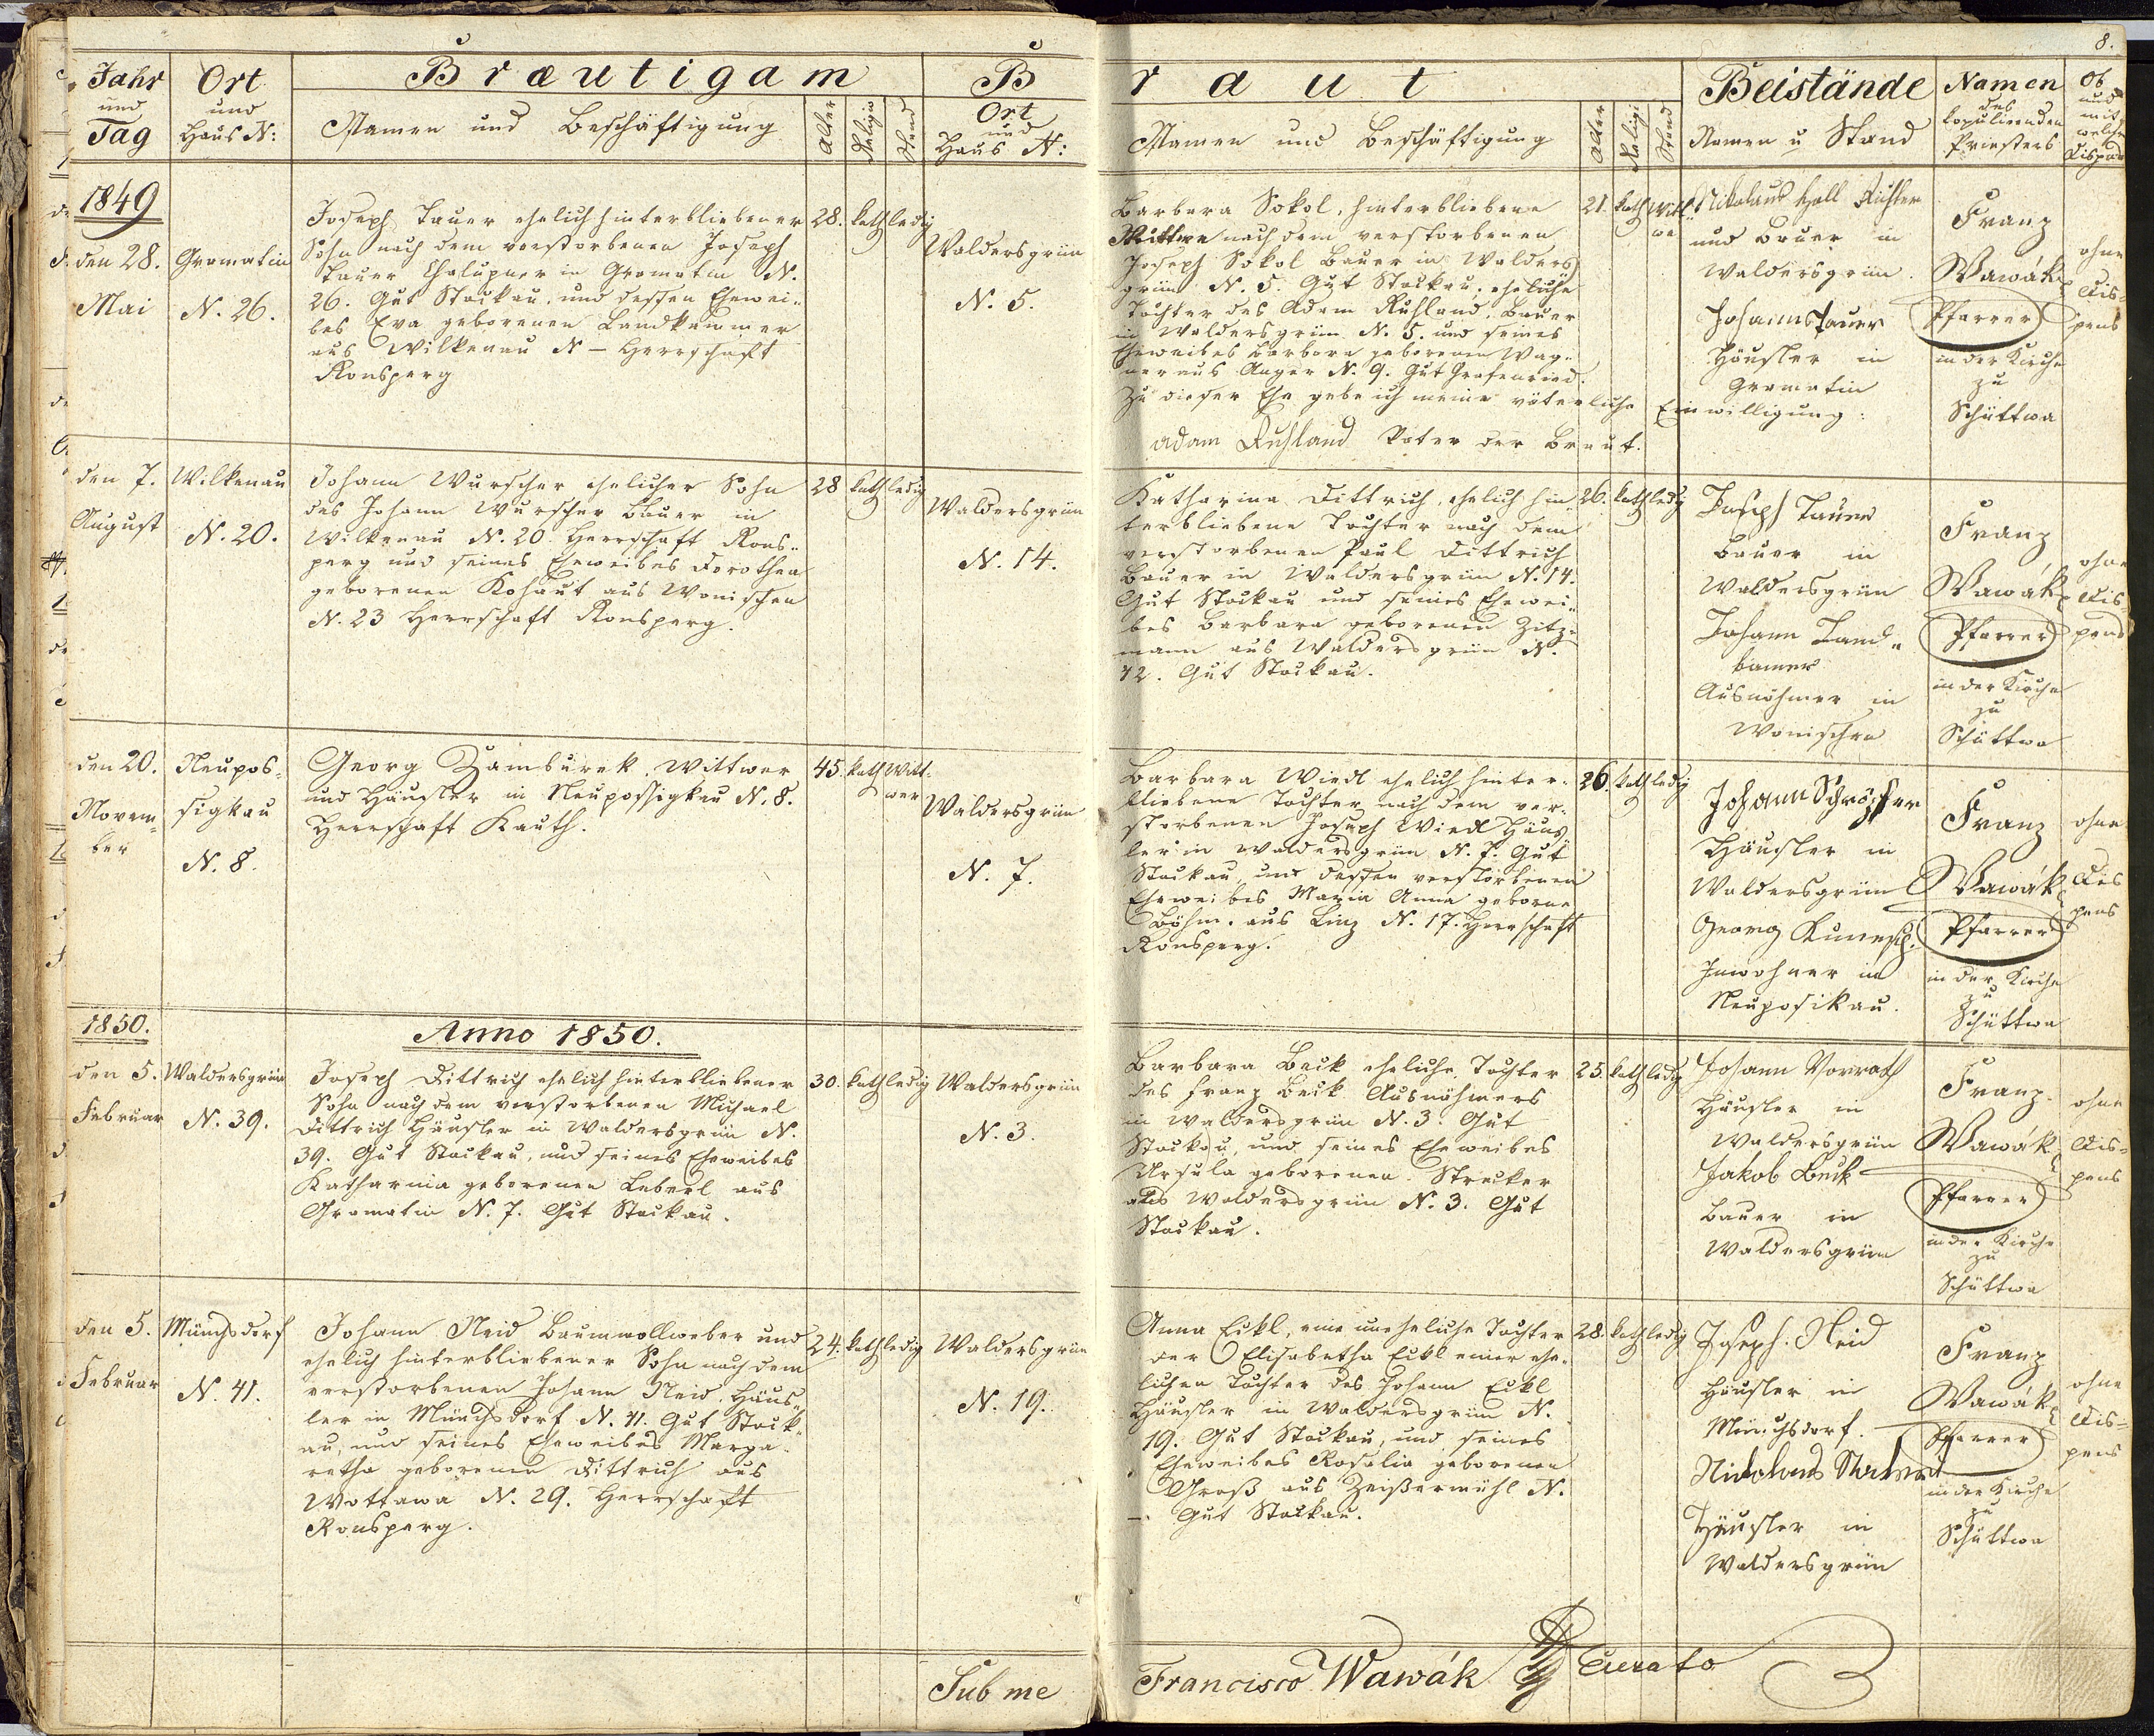 8.
Jahr
und
Tag
Ort
und
Haus N:
Bræutigam
Namen und Beschäftigung
Alter
Religio
Stand
B
Ort
und
Haus N:
raut
Namen und Beschäftigung
Alter
Religi
Stand
Beistände
Namen u Stand
Namen
des
kopulirenden
Priesters
Ob
und
mit
welche
Dispens
1849
den 28.
Mai
Gramatin
N. 26.
Joseph Tauer ehelich hinterbliebener
Sohn nach dem verstorbenen Joseph
Tauer Chalupner in Gramatin N.
26. Gut Stockau, und dessen Ehewei-
bes Eva geborenen Landkammer
aus Wilkenau N – Herrschaft
Ronsperg
28.
kath
ledig
Waldersgrün
N. 5.
Barbara Sokol, hinterbliebene
Wittwe nach dem verstorbenen
Joseph Sokol Bauer in Walders
grün N. 5. Gut Stockau, eheliche
Tochter des Adam Ruhland, Bauer
in Waldersgrün N. 5. und seines
Eheweibes Barbara geborenen Wag-
ner aus Anger N. 9. Gut Grafenried.
Zu dieser Ehe gebe ich meine väterliche Einwilligung:
Adam Ruhland Vater der Braut.
21.
kath
Witt
we
Nikolaus Holl Richter
und Bauer in
Waldersgrün.
Johann Tauer
Häusler in
Gramatin
Franz
Wawák
Pfarrer
in der Kirche
zu
Schüttwa
ohne
Dis-
pens
den 7.
August
Wilkenau
N. 20.
Johann Wurscher ehelicher Sohn
des Johann Wurscher Bauer in
Wilkenau N. 20. Herrschaft Rons-
perg und seines Eheweibes Dorothea
geborenen Kohaut aus Wonischen
N. 23 Herrschaft Ronsperg.
28
kath
ledig
Waldersgrün
N. 14.
Katharina Dittrich, ehelich hin-
terbliebene Tochter nach dem
verstorbenen Paul Dittrich
Bauer in Waldersgrün N. 14.
Gut Stockau und seines Ehewei-
bes Barbara geborenen Zitz-
mann aus Waldersgrün N.
12. Gut Stockau.
26.
kath
ledig
Joseph Tauer
Bauer in
Waldersgrün
Johann Land-
kamer
Ausnehmer in
Wonischen
Franz
Wawák
Pfarrer
in der Kirche
zu
Schüttwa
ohne
Dis-
pens
den 20.
Novem-
ber
Neupos-
sigkau
N. 8.
Georg Zamburek, Wittwer
und Häusler in Neupossigkau N. 8.
Herrschaft Kauth.
45.
kath
Witt-
wer
Waldersgrün
N. 7.
Barbara Wiedl ehelich hinter-
bliebene Tochter nach dem ver-
storbenen Joseph Wiedl Häus
ler in Waldersgrün N. 7. Gut
Stockau, und dessen verstorbenen
Eheweibes Maria Anna geborne
Böhm. aus Linz N. 17. Herrschaft
Ronsperg.
26.
kath
ledig
Johann Schröpfer
Häusler in
Waldersgrün
Georg
Inwohner in
Neuposikau.
Franz
Wawák
Pfarrer
in der Kirche
zu
Schüttwa
ohne
Dis
pens
1850.
Anno 1850.
den 5.
Februar
Waldersgrün
N. 39.
Joseph Dittrich ehelich hinterbliebener
Sohn nach dem verstorbenen Michael
Dittrich Häusler in Waldersgrün N.
39. Gut Stockau, und seines Eheweibes
Katharina geborenen Leberl aus
Gramatin N. 7. Gut Stockau.
30.
kath
ledig
Waldersgrün
N. 3.
Barbara Beck eheliche Tochter
des Franz Beck Ausnehmers
in Waldersgrün N. 3. Gut
Stockau, und seines Eheweibes
Ursula geborenen Strecker
aus Waldersgrün N. 3. Gut
Stockau.
25.
kath
ledig
Johann Vorrath
Häusler in
Waldersgrün
Jakob Beck
Bauer in
Waldersgrün
Franz
Wawák
Pfarrer
in der Kirche
zu
Schüttwa
ohne
Dis-
pens
den 5.
Februar
Münchsdorf
N. 41.
Johann Neid Baumwollweber und
ehelich hinterbliebener Sohn nach dem
verstorbenen Johann Neid, Häus-
ler in Münchsdorf N. 41. Gut Stock-
au, und seines Eheweibes Marga-
retha geborenen Dittrich aus
Wottawa N. 29. Herrschaft
Ronsperg.
24.
kath
ledig
Waldersgrün
N. 19.
Anna Eickl, eine uneheliche Tochter
der Elisabetha Eickl einer ehe-
lichen Tochter des Johann Eickl
Häusler in Waldersgrün N.
19. Gut Stockau, und seines
Eheweibes Rosalia geborenen
Groß aus Zeißermühl N.
–. Gut Stockau.
28.
kath
ledig
Joseph Neid
Häusler in
Münchsdorf.
Nikolaus
Häusler in
Waldersgrün
Franz
Wawák
Pfarrer
in der Kirche
zu
Schüttwa
ohne
Dis-
pens
Sub me Francisco Wawák Curato